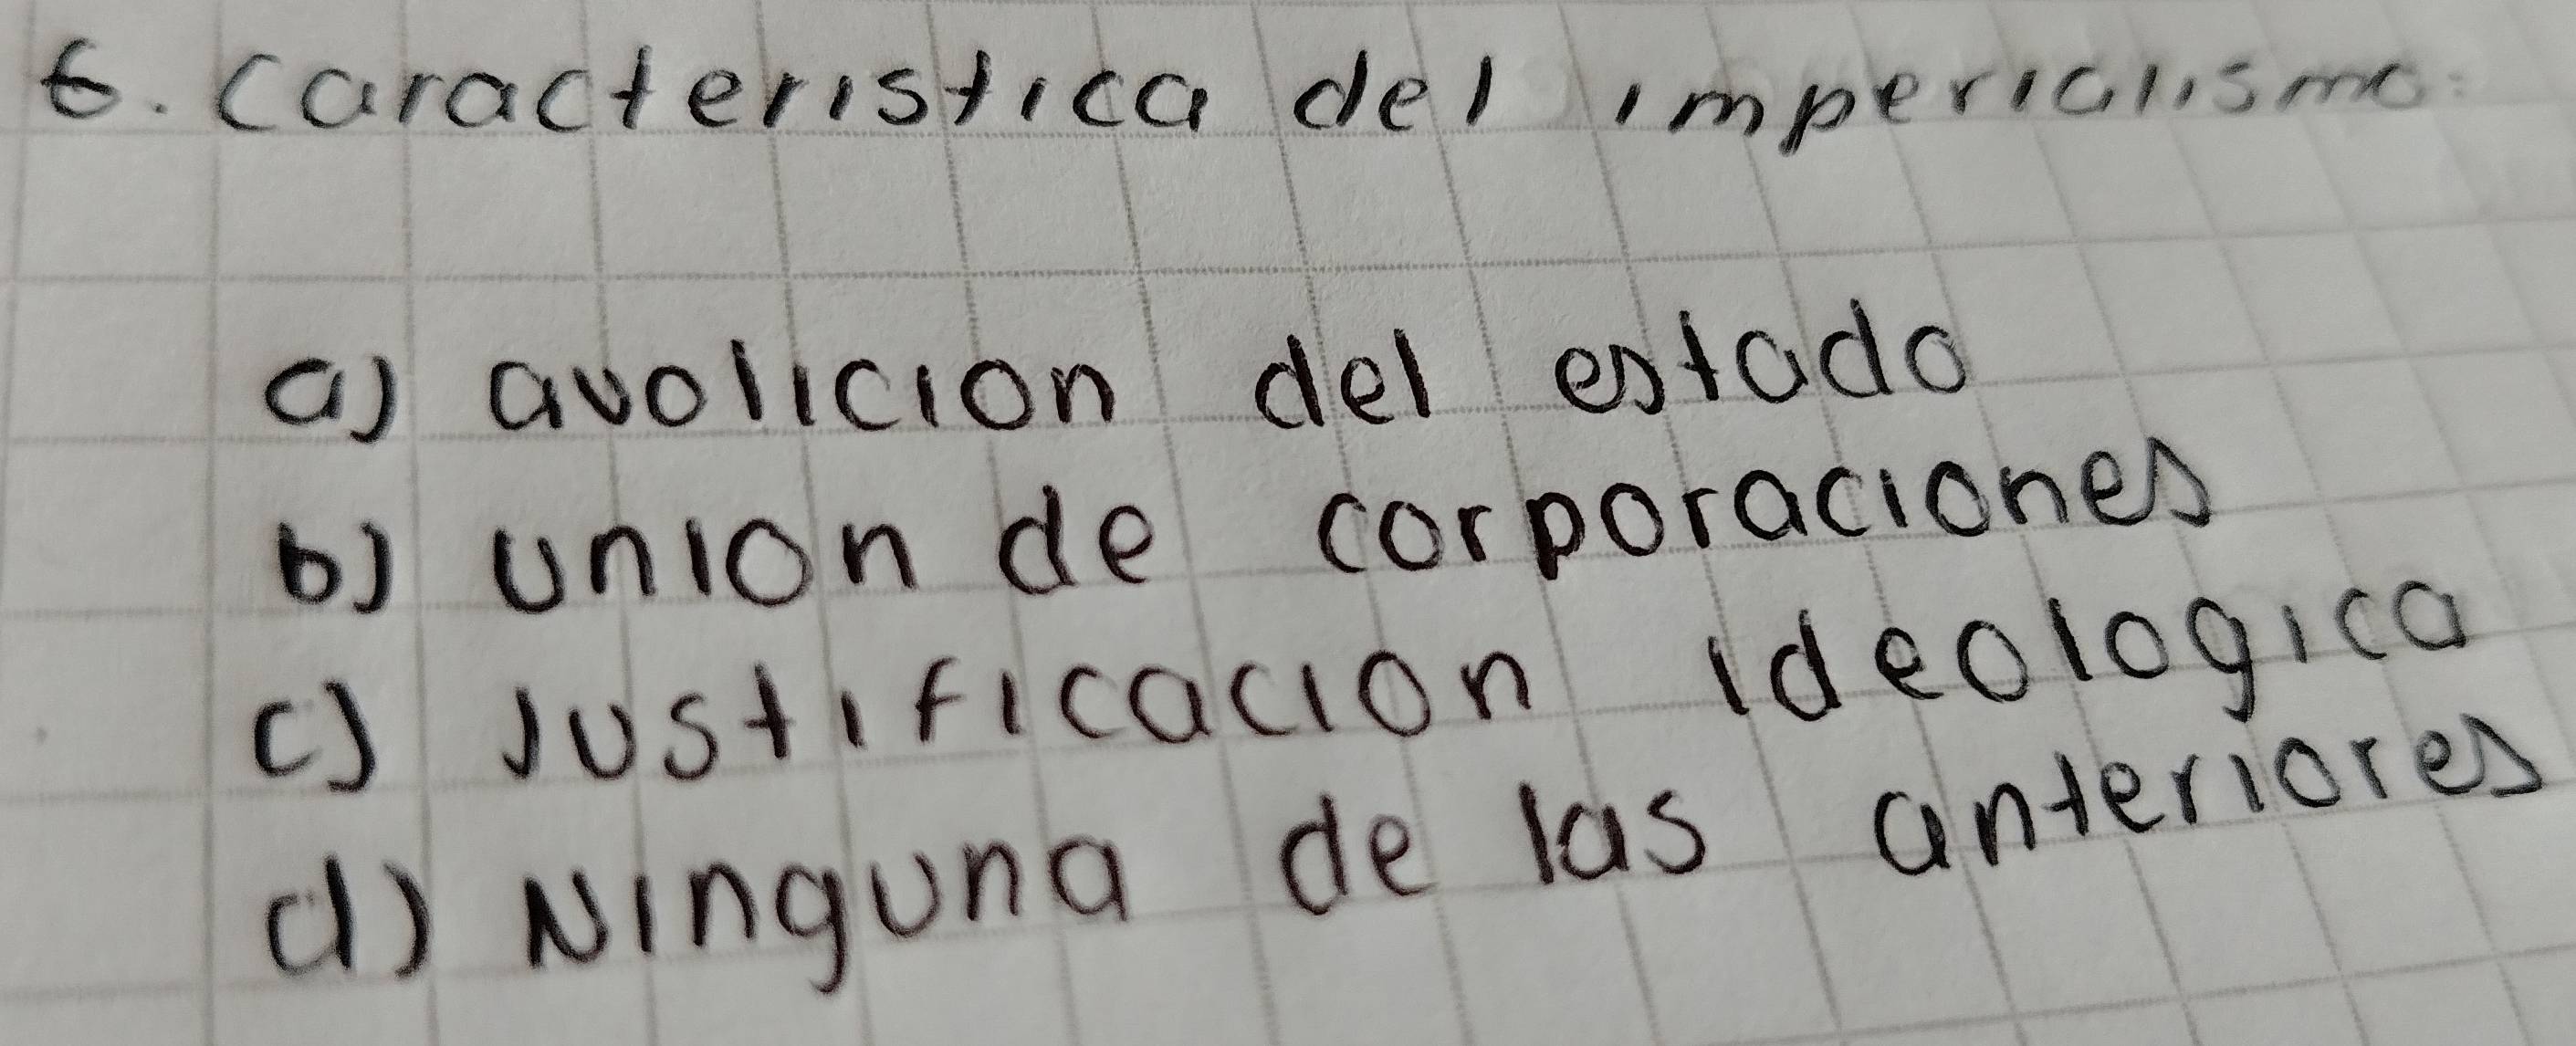 6. Caracteristica del imperialismo:
a) avolicion del estado
b) union de corporaciones
c) Justificacion ideologica
d) Ninguna de las anteriores